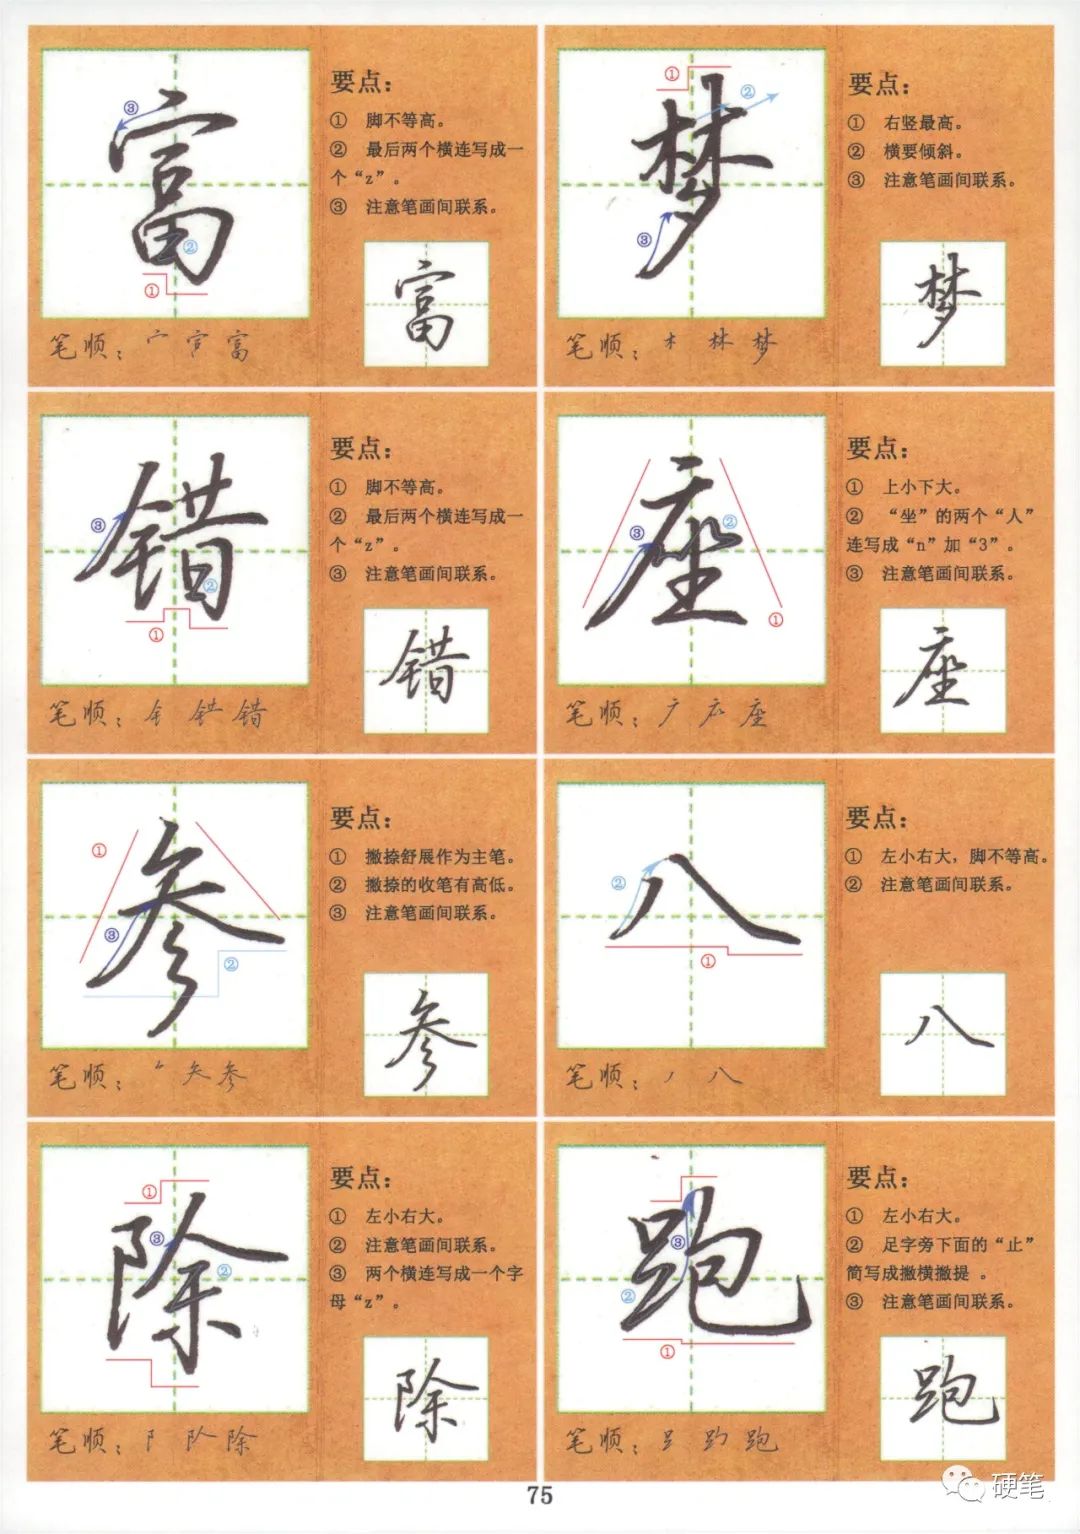 富
③
②
①
要点：
① 脚不等高。
② 最后两个横连写成一
个“z”。
③ 注意笔画间联系。
富
笔顺：宀 富
梦
①
②
③
要点：
① 右竖最高。
② 横要倾斜。
③ 注意笔画间联系。
梦
笔顺：木 林 梦
错
③
②
①
要点：
① 脚不等高。
② 最后两个横连写成一
个“z”。
③ 注意笔画间联系。
错
笔顺：钅 错
座
③
②
①
要点：
① 上小下大。
② “坐”的两个“人”
连写成“n”加“3”。
③ 注意笔画间联系。
座
笔顺：广 座
参
①
③
②
要点：
① 撇捺舒展作为主笔。
② 撇捺的收笔有高低。
③ 注意笔画间联系。
参
笔顺：参
八
②
①
要点：
① 左小右大，脚不等高。
② 注意笔画间联系。
八
笔顺：丿 八
除
①
③
②
要点：
① 左小右大。
② 注意笔画间联系。
③ 两个横连写成一个字
母“z”。
除
笔顺：阝 除
跑
③
②
①
要点：
① 左小右大。
② 足字旁下面的“止”
简写成撇横撇提 。
③ 注意笔画间联系。
跑
笔顺：跑
75
硬笔